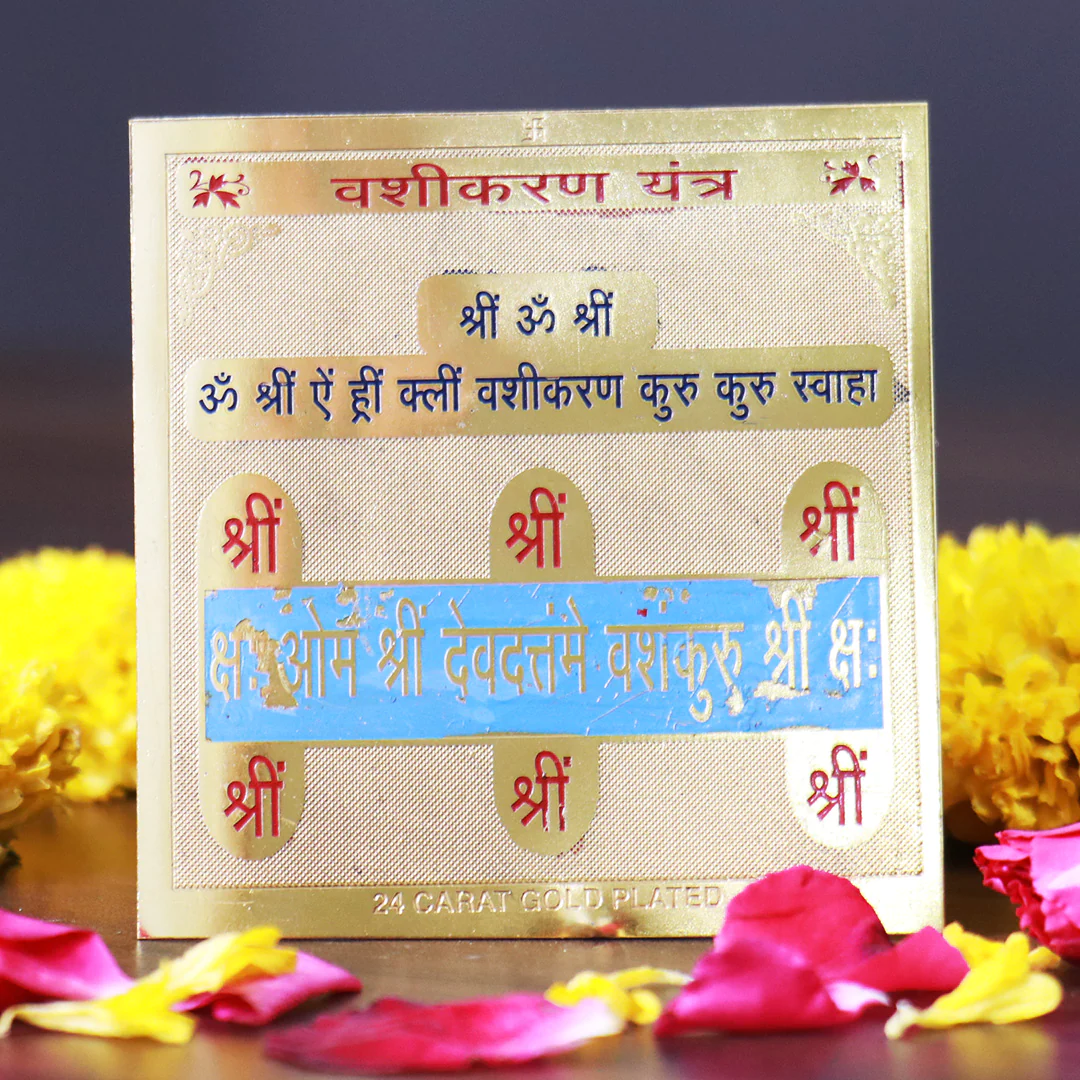 卐
वशीकरण यंत्र
श्रीं ॐ श्रीं
ॐ श्रीं ऐं ह्रीं क्लीं वशीकरण कुरु कुरु स्वाहा
श्रीं श्रीं श्रीं
क्षः ओम श्रीं देवदत्तंमे वशंकुरु श्रीं क्षः
श्रीं श्रीं श्रीं
24 CARAT GOLD PLATED